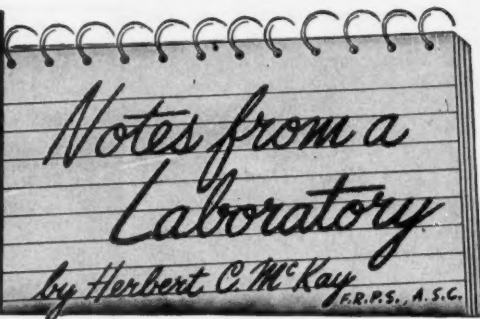 Notes from a
Laboratory
by Herbert C. McKay F.R.P.S., A.S.C.